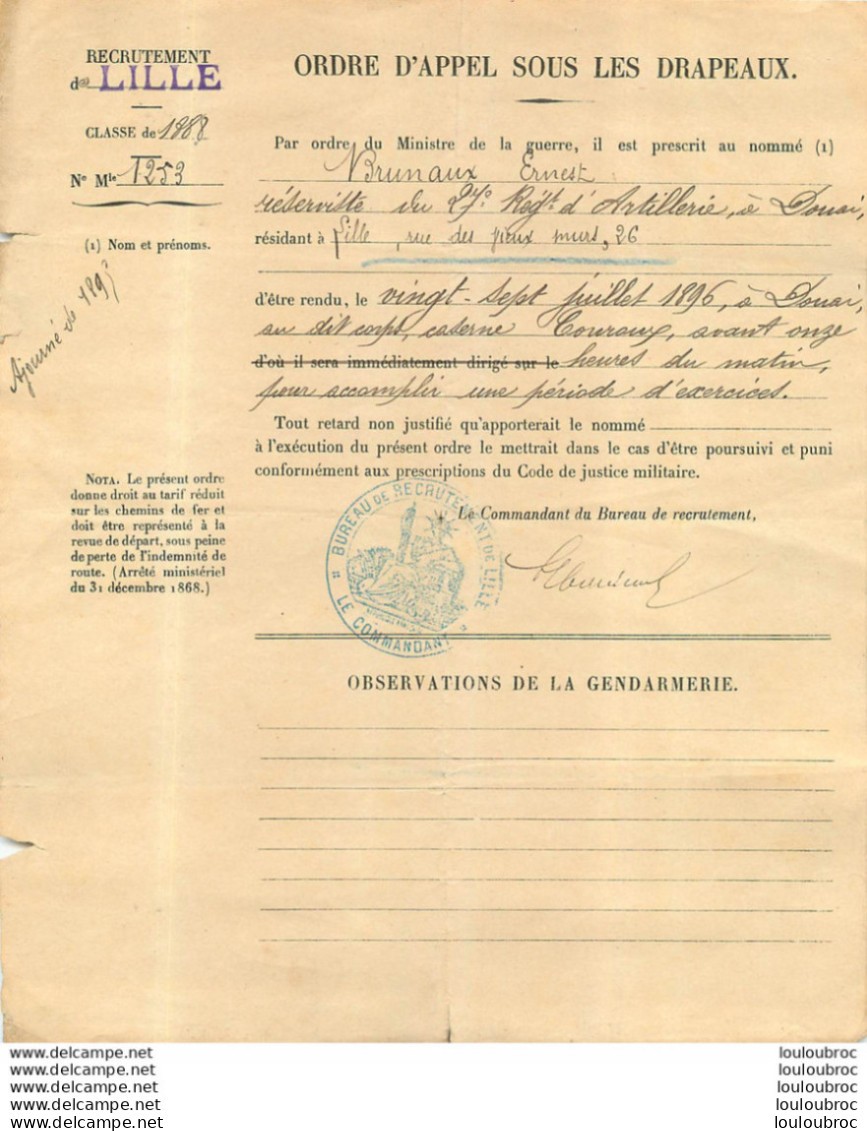 RECRUTEMENT
de LILLE
CLASSE de 1888
No Mle 1253
(1) Nom et prénoms.
Ajourné de 1895
NOTA. Le présent ordre
donne droit au tarif réduit
sur les chemins de fer et
doit être représenté à la
revue de départ, sous peine
de perte de l'indemnité de
route. (Arrêté ministériel
du 31 décembre 1868.)
ORDRE D'APPEL SOUS LES DRAPEAUX.
Par ordre du Ministre de la guerre, il est prescrit au nommé (1)
Brunaux Ernest
réserviste du 27e Régt d'Artillerie, à Douai,
résidant à Lille, rue des vieux murs, 26
d'être rendu, le vingt-sept juillet 1896, à Douai,
au dit corps, caserne Couraux, avant onze
d'où il sera immédiatement dirigé sur le heures du matin,
pour accomplir une période d'exercices.
Tout retard non justifié qu'apporterait le nommé
à l'exécution du présent ordre le mettrait dans le cas d'être poursuivi et puni
conformément aux prescriptions du Code de justice militaire.
Le Commandant du Bureau de recrutement,
BUREAU DE RECRUTEMENT DE LILLE
LE COMMANDANT
OBSERVATIONS DE LA GENDARMERIE.
www.delcampe.net louloubroc
www.delcampe.net louloubroc
www.delcampe.net louloubroc
www.delcampe.net louloubroc
www.delcampe.net louloubroc